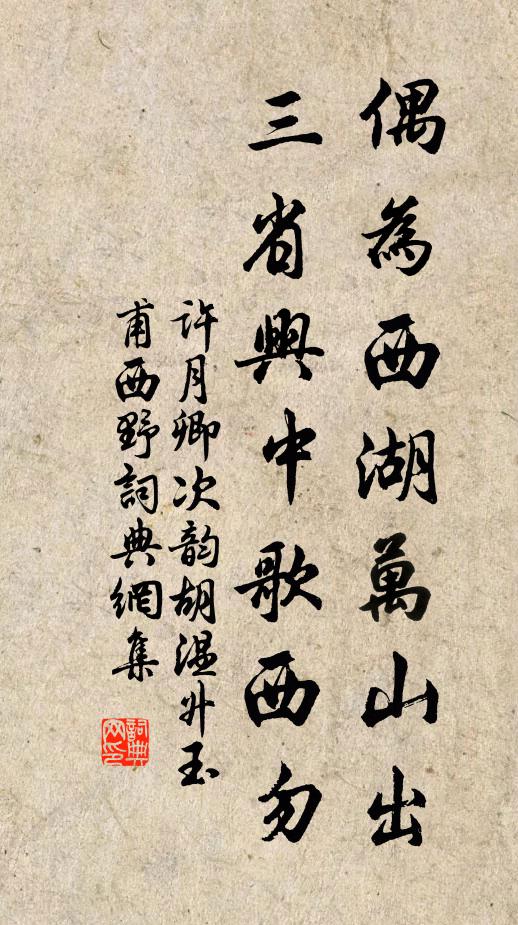 偶為西湖萬山出
三省興中歌西勿
許月卿次韵胡溫升玉
甫西野詞典網集
詞典網印